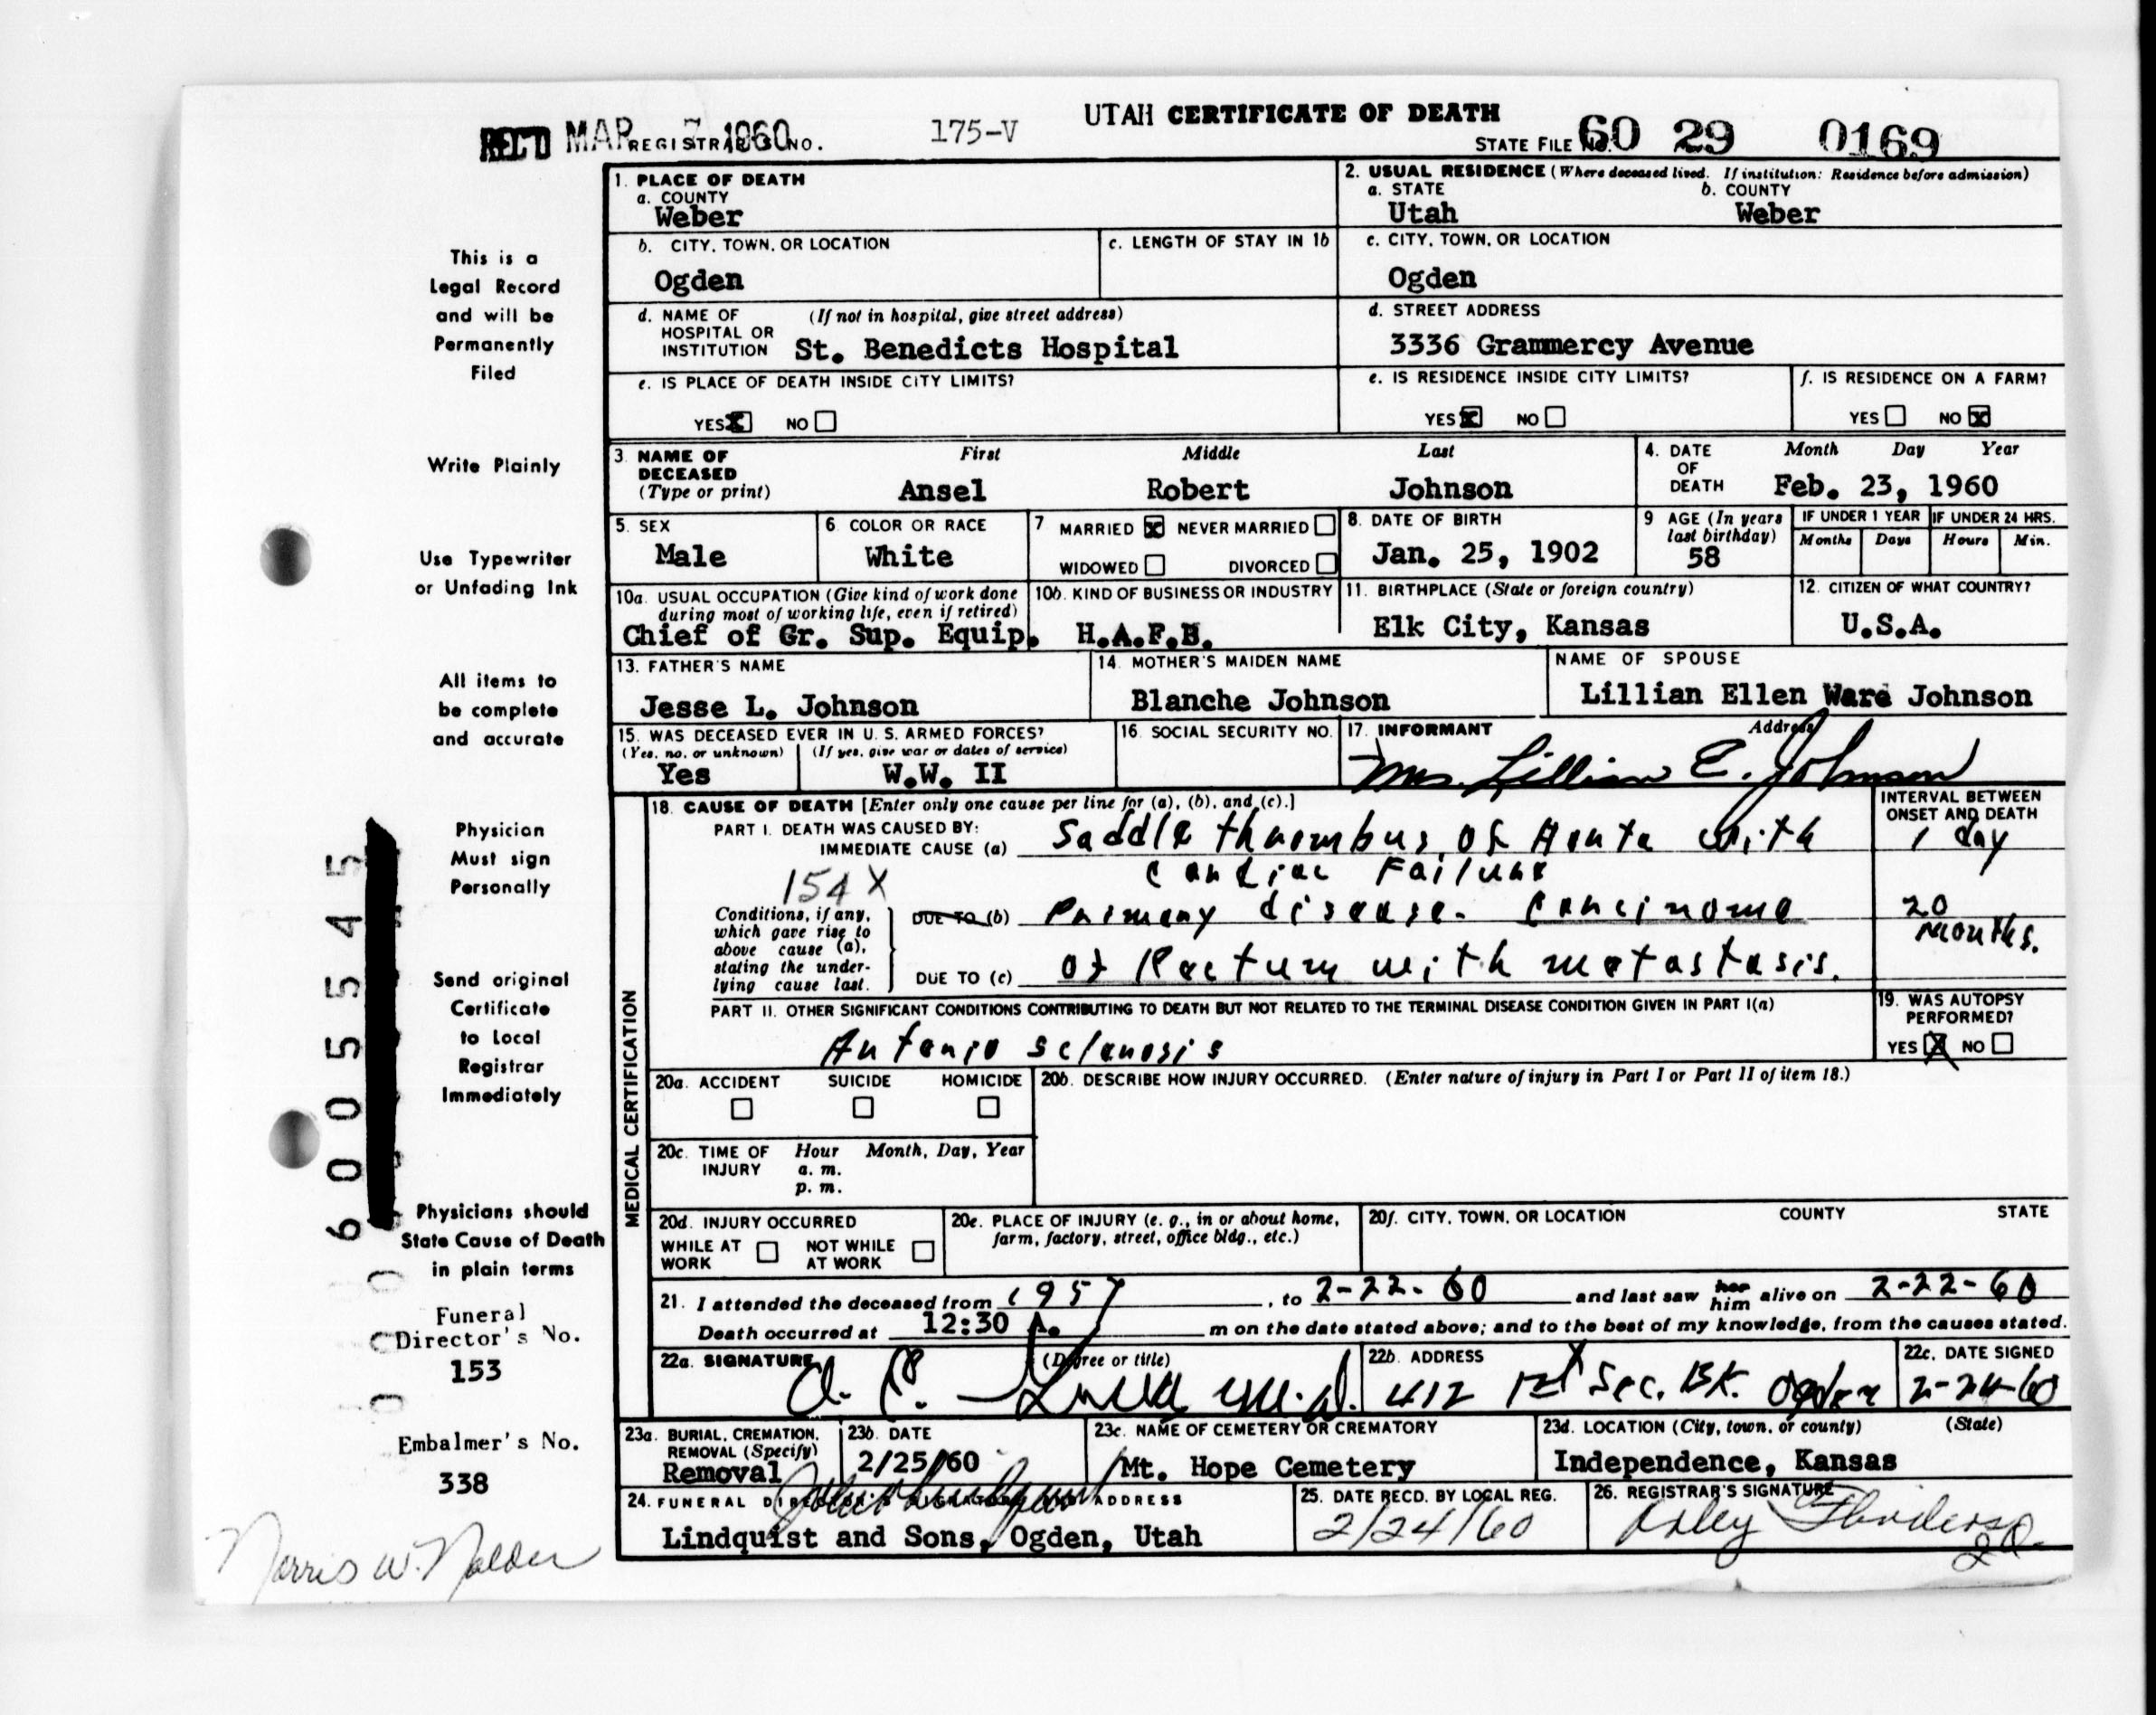 UTAH CERTIFICATE OF DEATH
REC'D MAR 7 1960 REGISTRAR'S NO. 175-V STATE FILE NO. 60 29 0169
1. PLACE OF DEATH
a. COUNTY
Weber
2. USUAL RESIDENCE (Where deceased lived. If institution: Residence before admission)
a. STATE b. COUNTY
Utah Weber
b. CITY, TOWN, OR LOCATION
Ogden
c. LENGTH OF STAY IN 1b
c. CITY, TOWN, OR LOCATION
Ogden
d. NAME OF (If not in hospital, give street address)
HOSPITAL OR
INSTITUTION St. Benedicts Hospital
d. STREET ADDRESS
3336 Grammercy Avenue
e. IS PLACE OF DEATH INSIDE CITY LIMITS?
YES X NO
e. IS RESIDENCE INSIDE CITY LIMITS?
YES X NO
f. IS RESIDENCE ON A FARM?
YES NO X
3. NAME OF First Middle Last
DECEASED
(Type or print) Ansel Robert Johnson
4. DATE Month Day Year
OF
DEATH Feb. 23, 1960
5. SEX
Male
6. COLOR OR RACE
White
7 MARRIED X NEVER MARRIED
WIDOWED DIVORCED
8. DATE OF BIRTH
Jan. 25, 1902
9 AGE (In years
last birthday)
58
IF UNDER 1 YEAR
Months Days
IF UNDER 24 HRS.
Hours Min.
10a. USUAL OCCUPATION (Give kind of work done
during most of working life, even if retired)
Chief of Gr. Sup. Equip.
10b. KIND OF BUSINESS OR INDUSTRY
H.A.F.B.
11. BIRTHPLACE (State or foreign country)
Elk City, Kansas
12. CITIZEN OF WHAT COUNTRY?
U.S.A.
13. FATHER'S NAME
Jesse L. Johnson
14. MOTHER'S MAIDEN NAME
Blanche Johnson
NAME OF SPOUSE
Lillian Ellen Ware Johnson
15. WAS DECEASED EVER IN U. S. ARMED FORCES?
(Yes, no, or unknown) (If yes, give war or dates of service)
Yes W.W. II
16. SOCIAL SECURITY NO.
17. INFORMANT Address
Mrs. Lillian E. Johnson
MEDICAL CERTIFICATION
18. CAUSE OF DEATH [Enter only one cause per line for (a), (b), and (c).]
INTERVAL BETWEEN
ONSET AND DEATH
PART I. DEATH WAS CAUSED BY:
IMMEDIATE CAUSE (a) Saddle thrombus of Aorta with 1 day
Cardiac Failure
154 X
Conditions, if any,
which gave rise to
above cause (a),
stating the under-
lying cause last.
DUE TO (b) Primary disease. Carcinoma 20
months.
DUE TO (c) of Rectum with metastasis.
PART II. OTHER SIGNIFICANT CONDITIONS CONTRIBUTING TO DEATH BUT NOT RELATED TO THE TERMINAL DISEASE CONDITION GIVEN IN PART I(a)
Arterio sclerosis
19. WAS AUTOPSY
PERFORMED?
YES X NO
20a. ACCIDENT SUICIDE HOMICIDE
20b. DESCRIBE HOW INJURY OCCURRED. (Enter nature of injury in Part I or Part II of item 18.)
20c. TIME OF Hour Month, Day, Year
INJURY a. m.
p. m.
20d. INJURY OCCURRED
WHILE AT NOT WHILE
WORK AT WORK
20e. PLACE OF INJURY (e. g., in or about home,
farm, factory, street, office bldg., etc.)
20f. CITY, TOWN, OR LOCATION COUNTY STATE
21. I attended the deceased from 1957, to 2-22-60 and last saw her him alive on 2-22-60
Death occurred at 12:30 A. m on the date stated above; and to the best of my knowledge, from the causes stated.
22a. SIGNATURE (Degree or title)
M.D.
22b. ADDRESS
412 1st Sec. BK. Ogden
22c. DATE SIGNED
2-24-60
23a. BURIAL, CREMATION,
REMOVAL (Specify)
Removal
23b. DATE
2/25/60
23c. NAME OF CEMETERY OR CREMATORY
Mt. Hope Cemetery
23d. LOCATION (City, town, or county) (State)
Independence, Kansas
24. FUNERAL DIRECTOR'S SIGNATURE AND ADDRESS
Lindquist and Sons, Ogden, Utah
25. DATE RECD. BY LOCAL REG.
2/24/60
26. REGISTRAR'S SIGNATURE
This is a
Legal Record
and will be
Permanently
Filed
Write Plainly
Use Typewriter
or Unfading Ink
All items to
be complete
and accurate
Physician
Must sign
Personally
Send original
Certificate
to Local
Registrar
Immediately
Physicians should
State Cause of Death
in plain terms
Funeral
Director's No.
153
Embalmer's No.
338
Norris W. Nalder
6005545